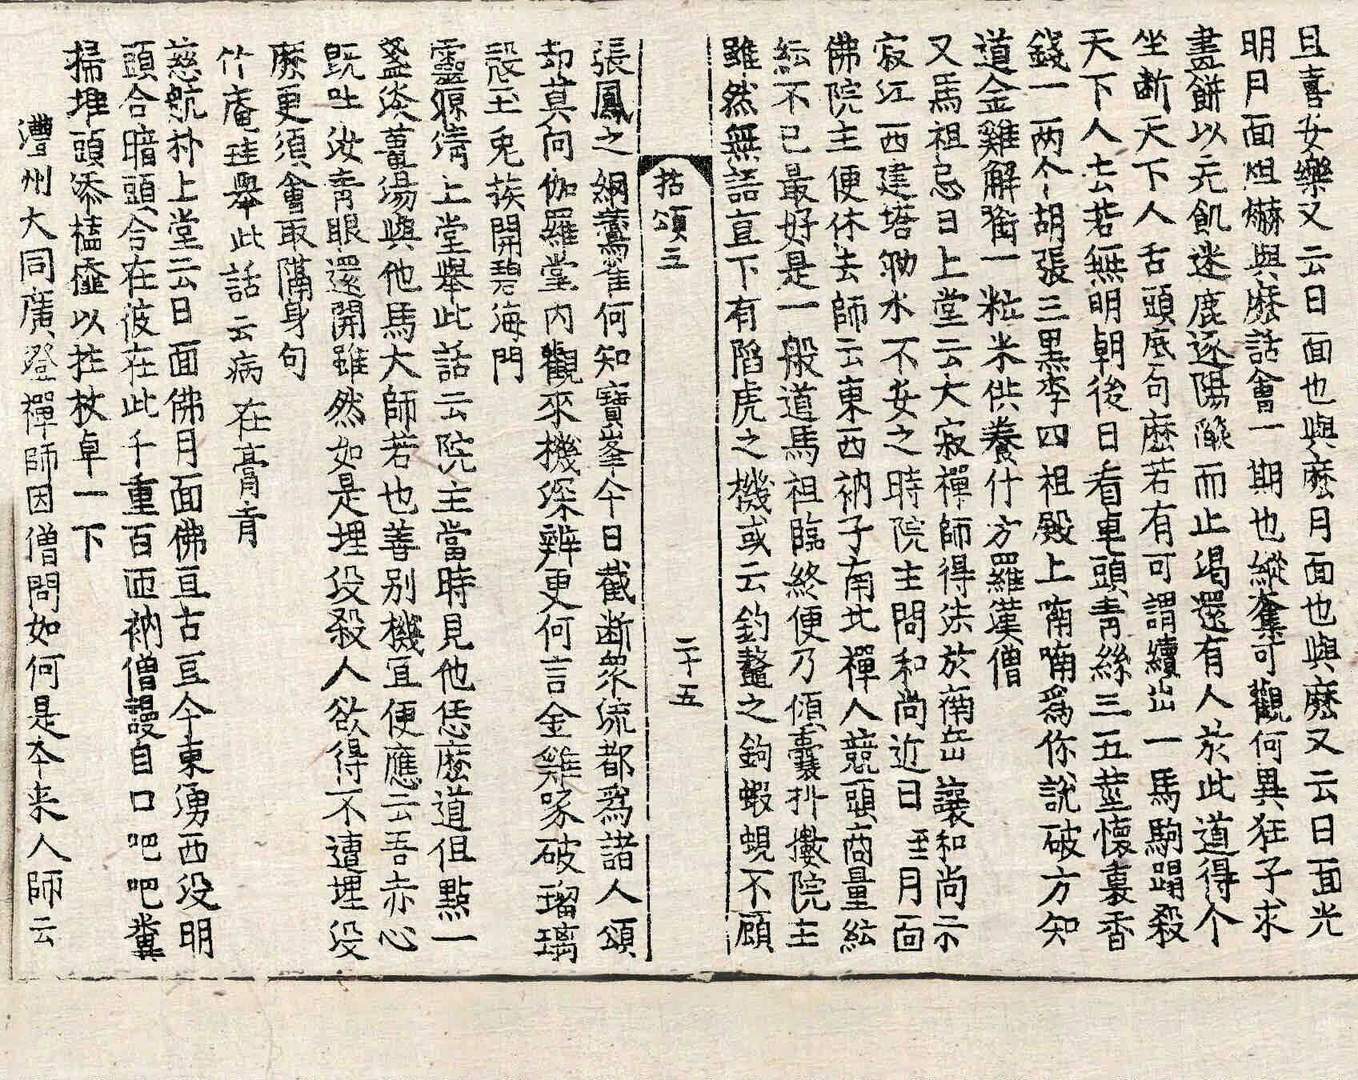 且喜安樂又云日面也與麽月面也與麽又云日面光
明月面烜爀與麽話會一期也縱奪可觀何異狂子求
畫餅以充飢迷鹿逐陽𦦨而止渴還有人於此道得个
坐断天下人舌頭底句麽若有可謂續出一馬駒蹋殺
天下人去若無明朝後日看皁頭青絲三五莖懷裏香
錢一兩个胡張三黒李四祖殿上喃喃爲你說破方知
道金雞解銜一粒米供養什方羅漢僧
又馬祖忌日上堂云大寂禪師得法於南岳讓和尚示
寂江西建塔泐水不安之時院主問和尚近日至三月面
佛院主便休去師云東西衲子南北禪人競頭商量紜
紜不已最好是一般道馬祖臨終便乃傾囊抖擻院主
雖然無語直下有陷虎之機或云釣鼇之鉤蝦蜆不顧
拈頌三 二十五
張鳳之網鷰雀何知寶峯今日截断衆流都爲諸人頌
却莫向伽羅堂内觀來機深辨更何言金雞啄破瑠璃
殼玉兔挨開碧海門
靈源淸上堂舉此話云院主當時見他恁麽道但點一
盞淡薑湯與他馬大師若也善别機宜便應云吾赤心
旣吐汝靑眼還開雖然如是埋沒殺人欲得不遭埋沒
麽更須會取隔身句
竹庵珪舉此話云病在膏肓
慈航朴上堂云日面佛月面佛亘古亘今東湧西没明
頭合暗頭合在彼在此千重百匝衲僧謾自口吧吧糞
掃堆頭添榼𣜩以拄杖卓一下
澧州大同廣澄禪師因僧問如何是夲来人師云